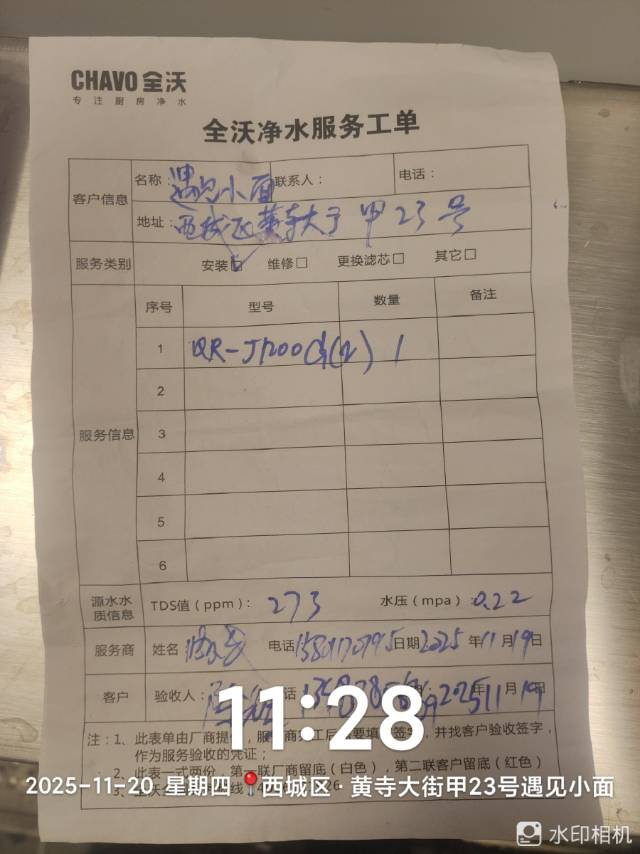 CHAVO 全沃
专注厨房净水
全沃净水服务工单
客户信息 名称：遇见小面 联系人： 电话：
地址：西城区黄寺大 甲23号
服务类别 安装☑ 维修□ 更换滤芯□ 其它□
服务信息 序号 型号 数量 备注
1 QR-J1200G(2) 1
2
3
4
5
6
源水水质信息 TDS值（ppm）：273 水压（mpa）：0.22
服务商 姓名 电话 日期2025年11月19日
客户 验收人： 2025 11月19
注：1、此表单由厂商提 并找客户验收签字，
作为服务验收的凭证；
2、此表一式两份，第一联厂商留底（白色），第二联客户留底（红色）
3、全沃
11:28
2025-11-20 星期四 西城区·黄寺大街甲23号遇见小面
水印相机